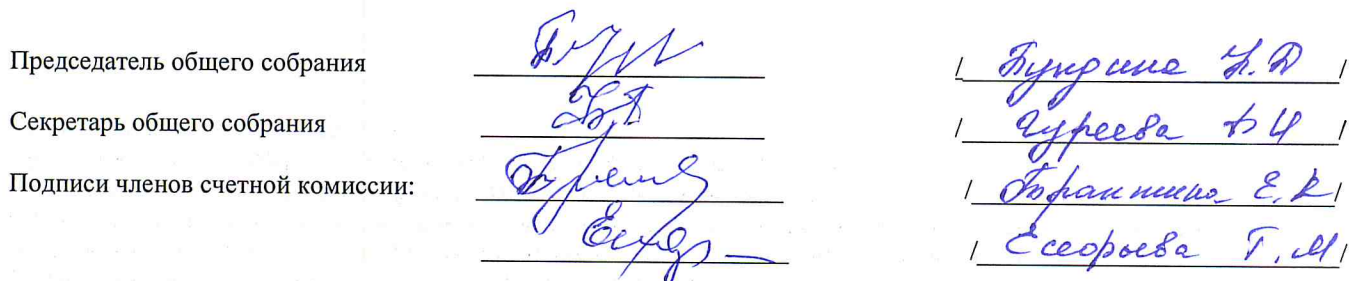 Председатель общего собрания / Бундина Н.Д /
Секретарь общего собрания / Гуреева А И /
Подписи членов счетной комиссии: / Е.В /
/ Т.М /